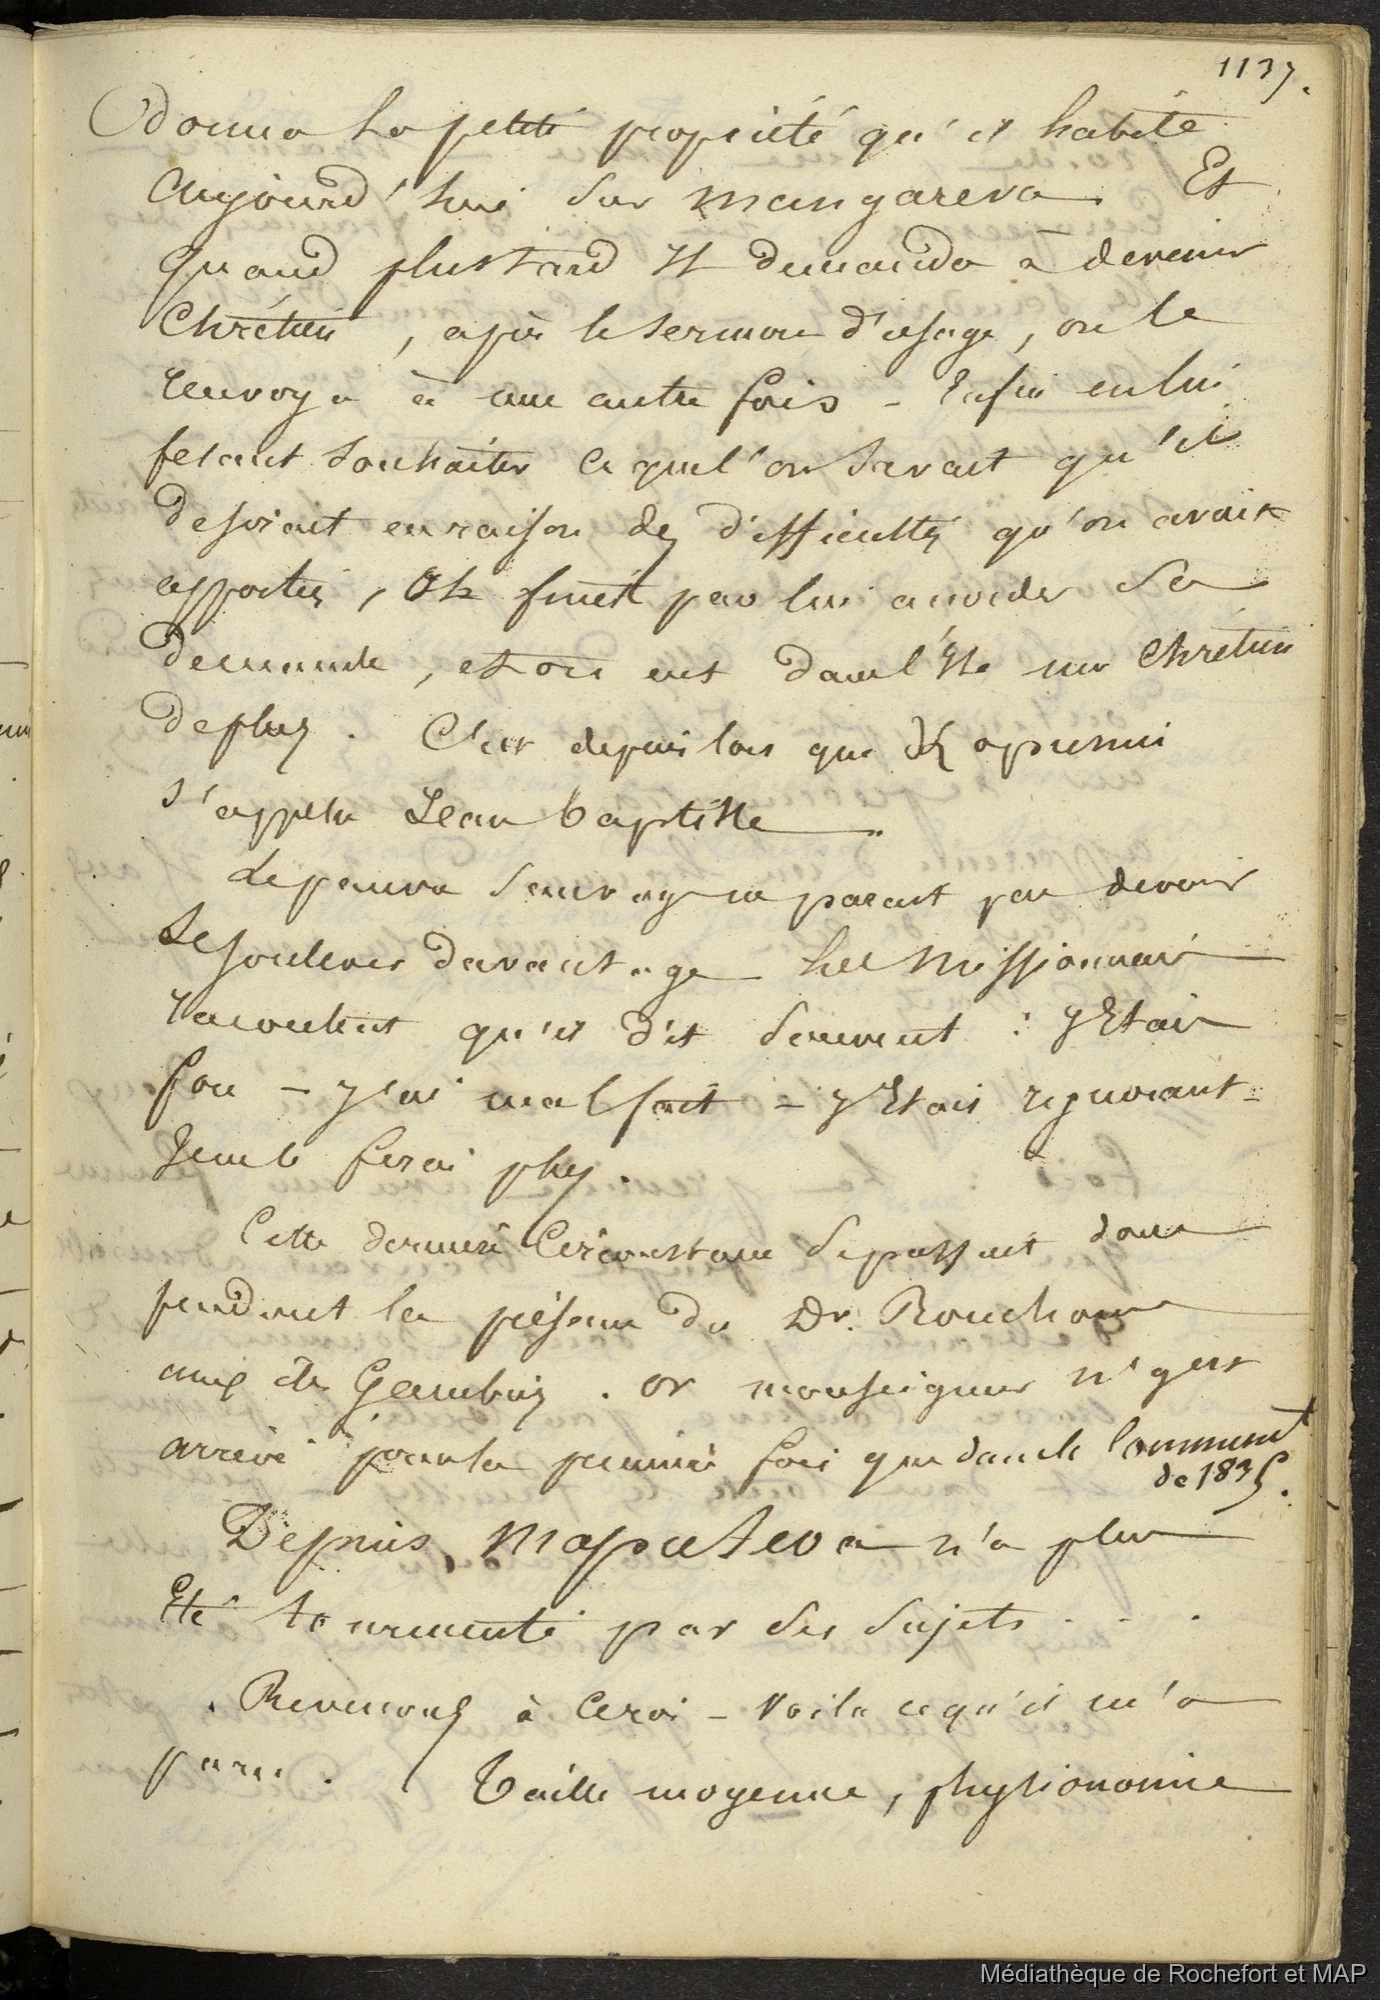 1137.
donna la petite propriété qu'il habite
aujourd'hui sur Mangareva. Et
quand plustard Il demanda à devenir
Chrétien, après le sermon d'usage, on le
renvoya à une autre fois - Enfin en lui
fesant souhaiter ce que l'on savait qu'il
desirait en raison des difficultés qu'on avait
apportés, On finit par lui accorder sa
demande, et on eut dans l'Ile un Chrétien
de plus. C'est depuis lors que Kapunui
s'appela Jean baptiste.
Le pauvre sauvage ne parait pas devoir
se soulever davantage les Missionnaires
racontent qu'il dit souvent : J'Etais
fou - J'ai mal fait - J'Etais ignorant -
Je ne le ferai plus.
Cette dernière Circonstance se passait donc
pendant la présence du Dr. Rouchouse
aux iles Gambier. Or monseigneur n'y est
arrivé pour la première fois que dans le Commencement
de 1835.
Depuis, Maputeoa n'a plus
Eté tourmenté par ses sujets . . .
Revenons à ce roi - Voila ce qu'il m'a
paru. Taille moyenne, physionomie
Médiathèque de Rochefort et MAP